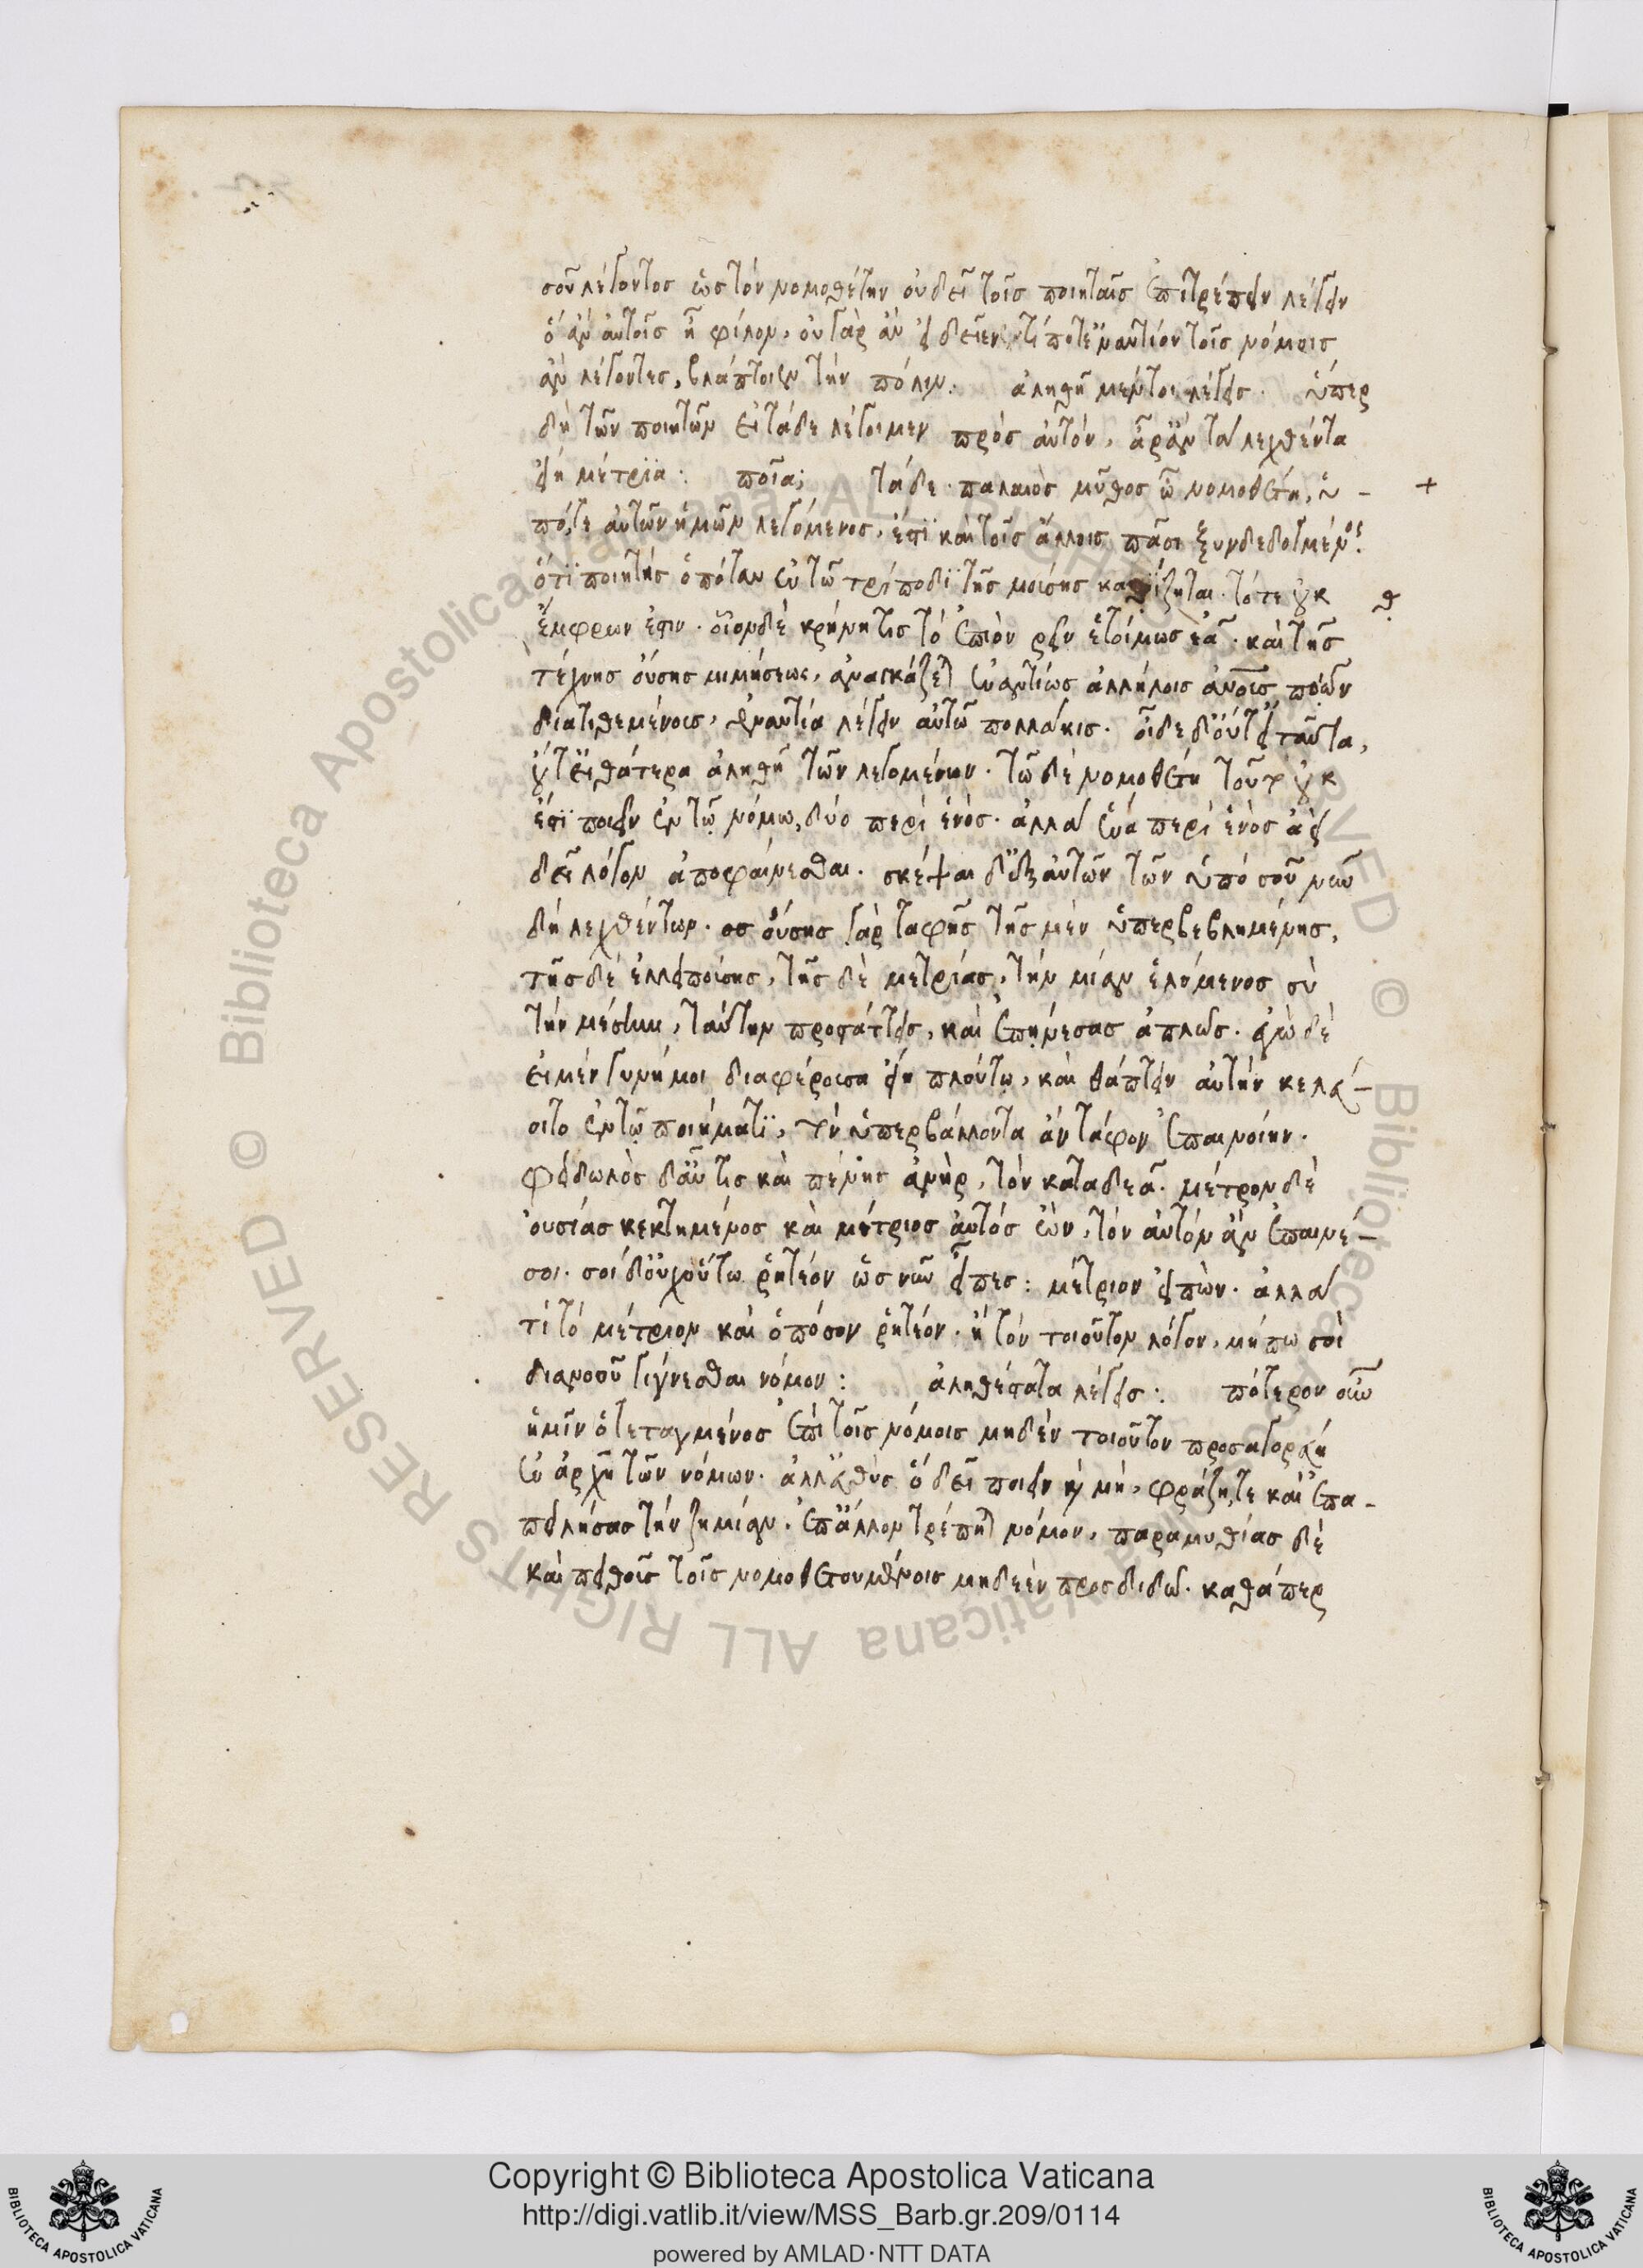 σοῦ λέγοντος ὡς τὸν νομοθέτην οὐ δεῖ τοῖς ποιηταῖς ἐπιτρέπειν λέγειν
ὃ ἂν αὐτοῖς ᾖ φίλον. οὐ γὰρ ἂν εἰδεῖεν τί ποτ' ἐναντίον τοῖς νόμοις
ἂν λέγοντες, βλάπτοιεν τὴν πόλιν. ἀληθῆ μέντοι λέγεις. ὑπὲρ
δὴ τῶν ποιητῶν εἰ τάδε λέγοιμεν πρὸς αὐτόν, ἆρ' ἂν τὰ λεχθέντα
εἴη μέτρια: ποῖα; τάδε. παλαιὸς μῦθος ὦ νομοθέτα, ὑ- +
πό τε αὐτῶν ἡμῶν λεγόμενος, ἐστὶ καὶ τοῖς ἄλλοις πᾶσι ξυνδεδογμένος.
ὅτι ποιητὴς ὁπόταν ἐν τῷ τρίποδι τῆς μούσης καθίζηται. τότε οὐκ
ἔμφρων ἐστιν. οἷον δὲ κρήνη τις τὸ ἐπιὸν ῥεῖν ἑτοίμως ἐᾷ. καὶ τῆς
τέχνης οὔσης μιμήσεως, ἀναγκάζεται ἐναντίως ἀλλήλοις ἀνοις ποιῶν
διατιθεμένοις, ἐναντία λέγειν αὑτῷ πολλάκις. οἶδε δ' οὔτ' εἰ ταῦτα,
οὔτ' εἰ θάτερα ἀληθῆ τῶν λεγομένων. τῷ δὲ νομοθέτῃ τοῦτο οὐκ
ἔστι ποιεῖν ἐν τῷ νόμῳ, δύο περὶ ἑνός. ἀλλὰ ἕνα περὶ ἑνὸς ἀεὶ
δεῖ λόγον ἀποφαίνεσθαι. σκέψαι δ' ἐξ αὐτῶν τῶν ὑπὸ σοῦ νῦν
δὴ λεχθέντων. οσ οὔσης γὰρ ταφῆς τῆς μὲν ὑπερβεβλημένης,
τῆς δὲ ἐλλειπούσης, τῆς δὲ μετρίας, τὴν μίαν ἑλόμενος σὺ
τὴν μέσην, ταύτην προστάττεις, καὶ ἐπῄνεσας ἁπλῶς. ἐγὼ δὲ
εἰ μὲν γυνή μοι διαφέρουσα εἴη πλούτῳ, καὶ θάπτειν αὐτὴν κελεύ-
οιτο ἐν τῷ ποιήματι, τὸν ὑπερβάλλοντα ἂν τάφον ἐπαινοίην.
φειδωλὸς δ' αὖ τις καὶ πένης ἀνὴρ, τὸν καταδεᾶ. μέτρον δὲ
οὐσίας κεκτημένος καὶ μέτριος αὐτὸς ὢν, τὸν αὐτὸν ἂν ἐπαινέ-
σοι. σοὶ δ' οὐχ οὕτω ῥητέον ὡς νῦν εἶπες: μέτριον εἰπών. ἀλλὰ
τί τὸ μέτριον καὶ ὁπόσον ῥητέον. ἢ τὸν τοιοῦτον λόγον, μήπω σοὶ
διανοοῦ γίγνεσθαι νόμον: ἀληθέστατα λέγεις: πότερον οὖν
ἡμῖν ὁ τεταγμένος ἐπὶ τοῖς νόμοις μηδὲν τοιοῦτον προσαγορεύῃ
ἐν ἀρχῇ τῶν νόμων. ἀλλ' εὐθὺς ὃ δεῖ ποιεῖν ἢ μὴ, φράζῃ τε καὶ ἐπα-
πειλήσας τὴν ζημίαν. ἐπ' ἄλλον τρέπηται νόμον, παραμυθίας δὲ
καὶ πειθοῖς τοῖς νομοθετουμένοις μηδὲ ἓν προσδιδῷ. καθάπερ
Copyright © Biblioteca Apostolica Vaticana
http://digi.vatlib.it/view/MSS_Barb.gr.209/0114
powered by AMLAD·NTT DATA